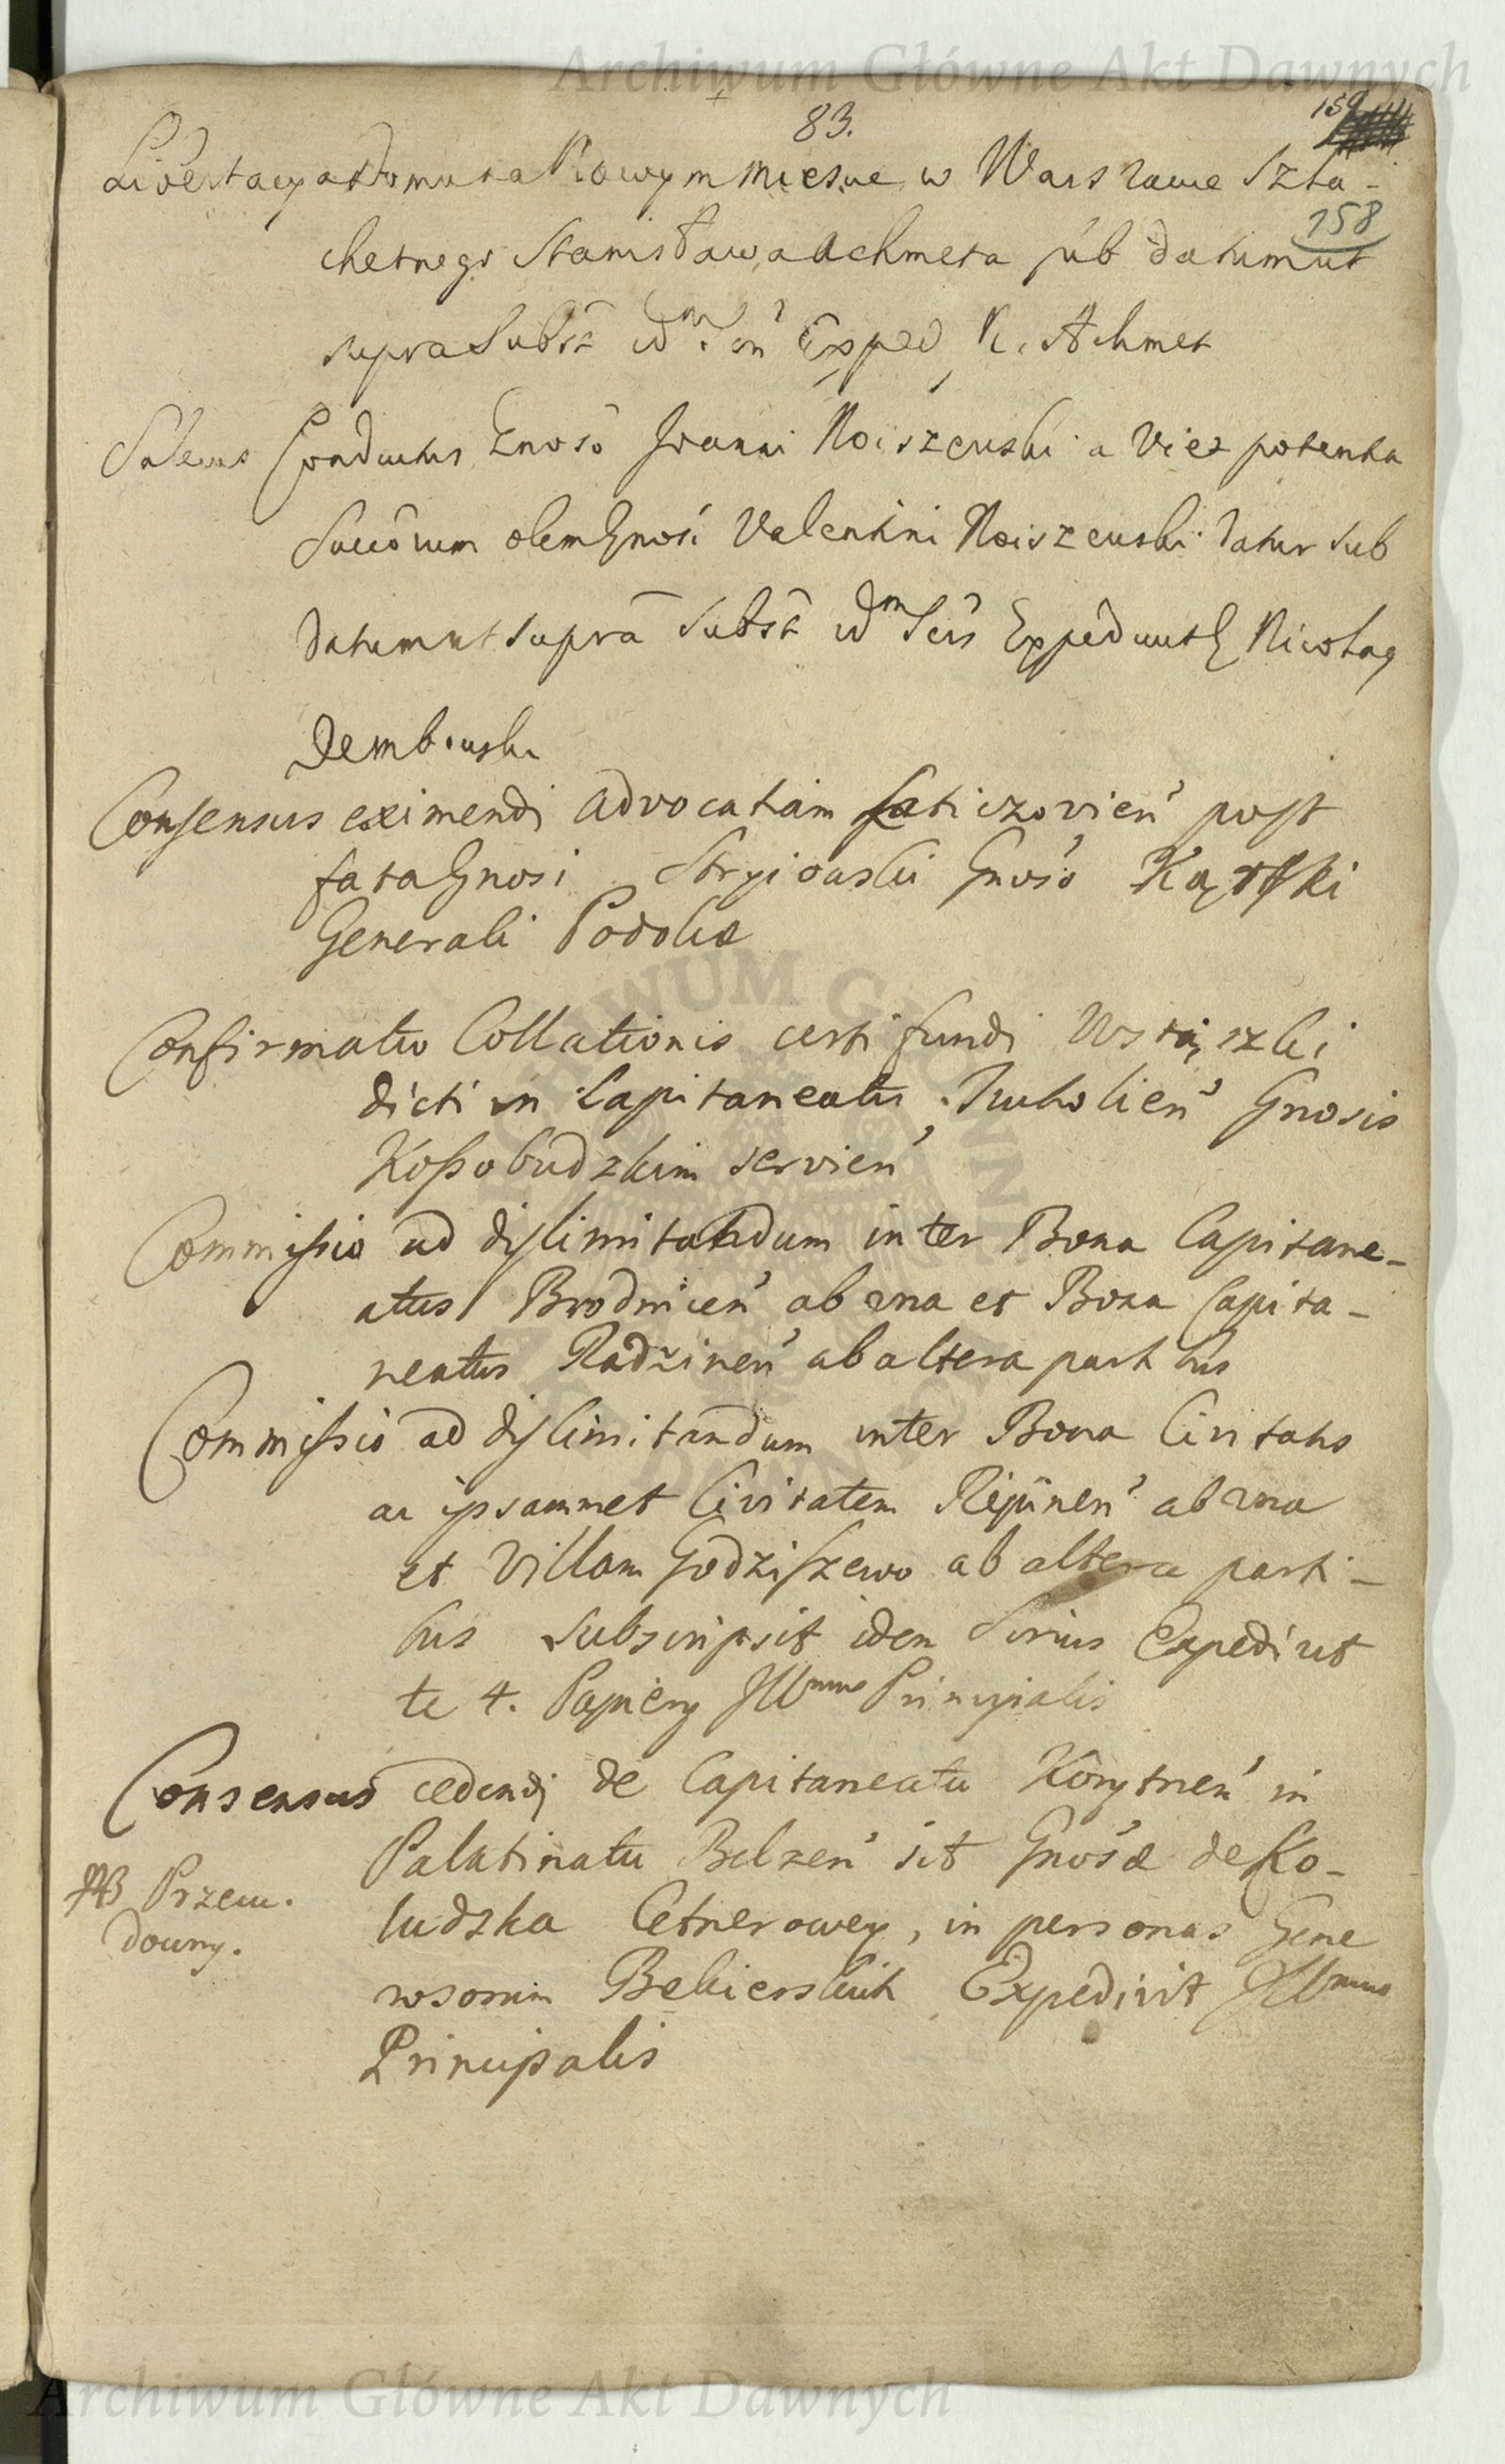 Archiwum Główne Akt Dawnych
83.
159
158
Libertacya Domu na Nowym miescie w Warszawie Szla-
chetnego Stanisława Achmeta sub datum ut
supra Subst Exped N. Achmet
Salvus Conductus Gnoso Joanni Noiszewski a Viol potentia
Succorum olim Gnosi Valentini Noiszewski datur sub
datum ut supra Subst Expediuit G Nicolay
Dembowski
Consensus eximendi advocatiam Laticzovien post
fata Gnosi Stryiowski Gnoso Kątski
Generali Podoliæ
Confirmatio Collationis certi fundi
dicti in Capitaneatu Tucholien Gnosis
Koßobudzkim servien
Commissio ad dislimitandum inter Bona Capitane-
atus Brodnicen ab una et Bona Capita-
neatus Radzinen ab altera partibus
Commissio ad dislimitandum inter Bona Civitatis
ac ipsammet Civitatem ab una
et Villam Godziszewo ab altera parti-
bus Subscripsit idem Expediuit
te 4. Papiery Illmus Principalis
Consensus cedendi de Capitaneatu Korytnen in
Palatinatu Belzen sit Gnosæ de Ko-
ludzka Cetnerowey, in personas Gene
rosorum Bekierskich Expedivit Illmus
Principalis
NB Przew.
downy.
Archiwum Główne Akt Dawnych